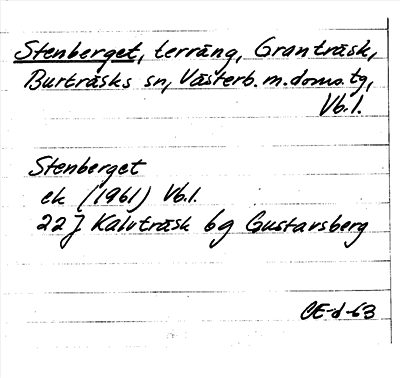 Stenberget, terräng, Granträsk,
Burträsks sn, Västerb. m. doms. tg,
Vb.l.
Stenberget
ek (1961) Vb.l.
22J Kalvträsk 6g Gustavsberg
CE-d-63